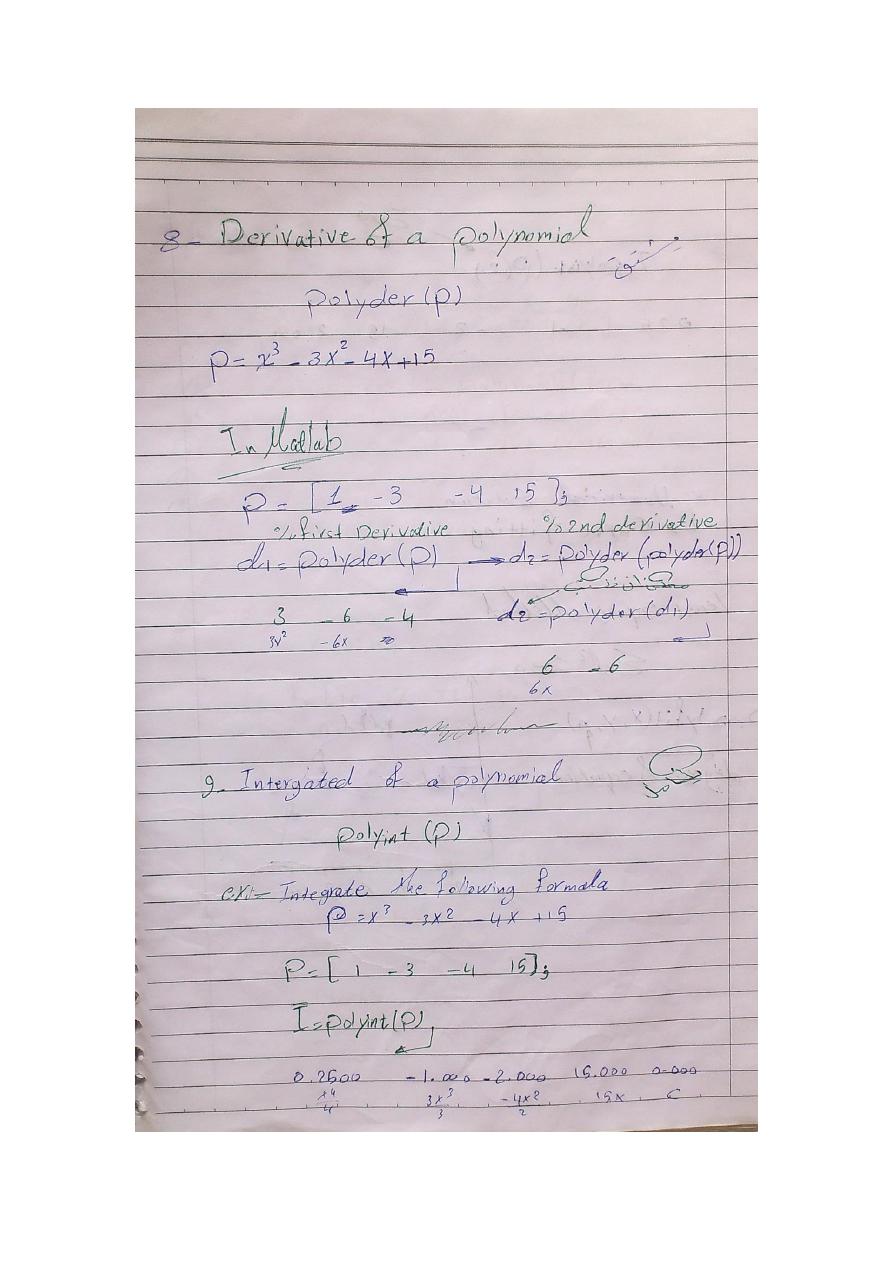 8- Derivative of a polynomial
مشتق
polyder(p)
p = x³ - 3x² - 4x + 15
In Matlab
p = [1 -3 -4 15];
% first Derivative % 2nd derivative
d1 = polyder(p) → d2 = polyder(polyder(p))
d2 = polyder(d1)
3 -6 -4
3x² -6x
6 -6
6x
9- Intergated of a polynomial
polyint (p)
ex:- Integrate the following formala
P = x³ - 3x2 - 4x + 15
P = [ 1 -3 -4 15];
I = polyint(P)
0.2500 -1.000 -2.000 15.000 0.000
x4/4 3x³/3 -4x2/2 15x C